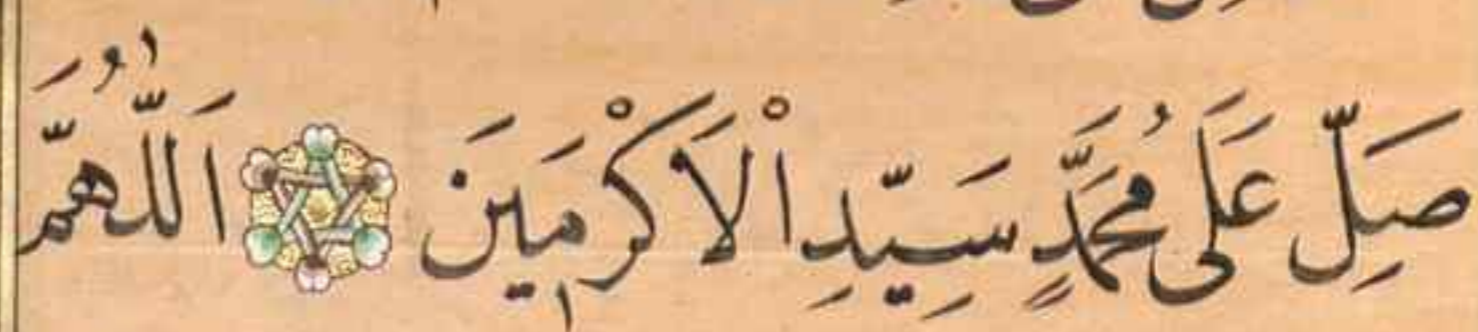 صَلِّ عَلَى مُحَمَّدٍ سَيِّدِ اْلاَكْرَمِينَ اَللّٰهُمَّ